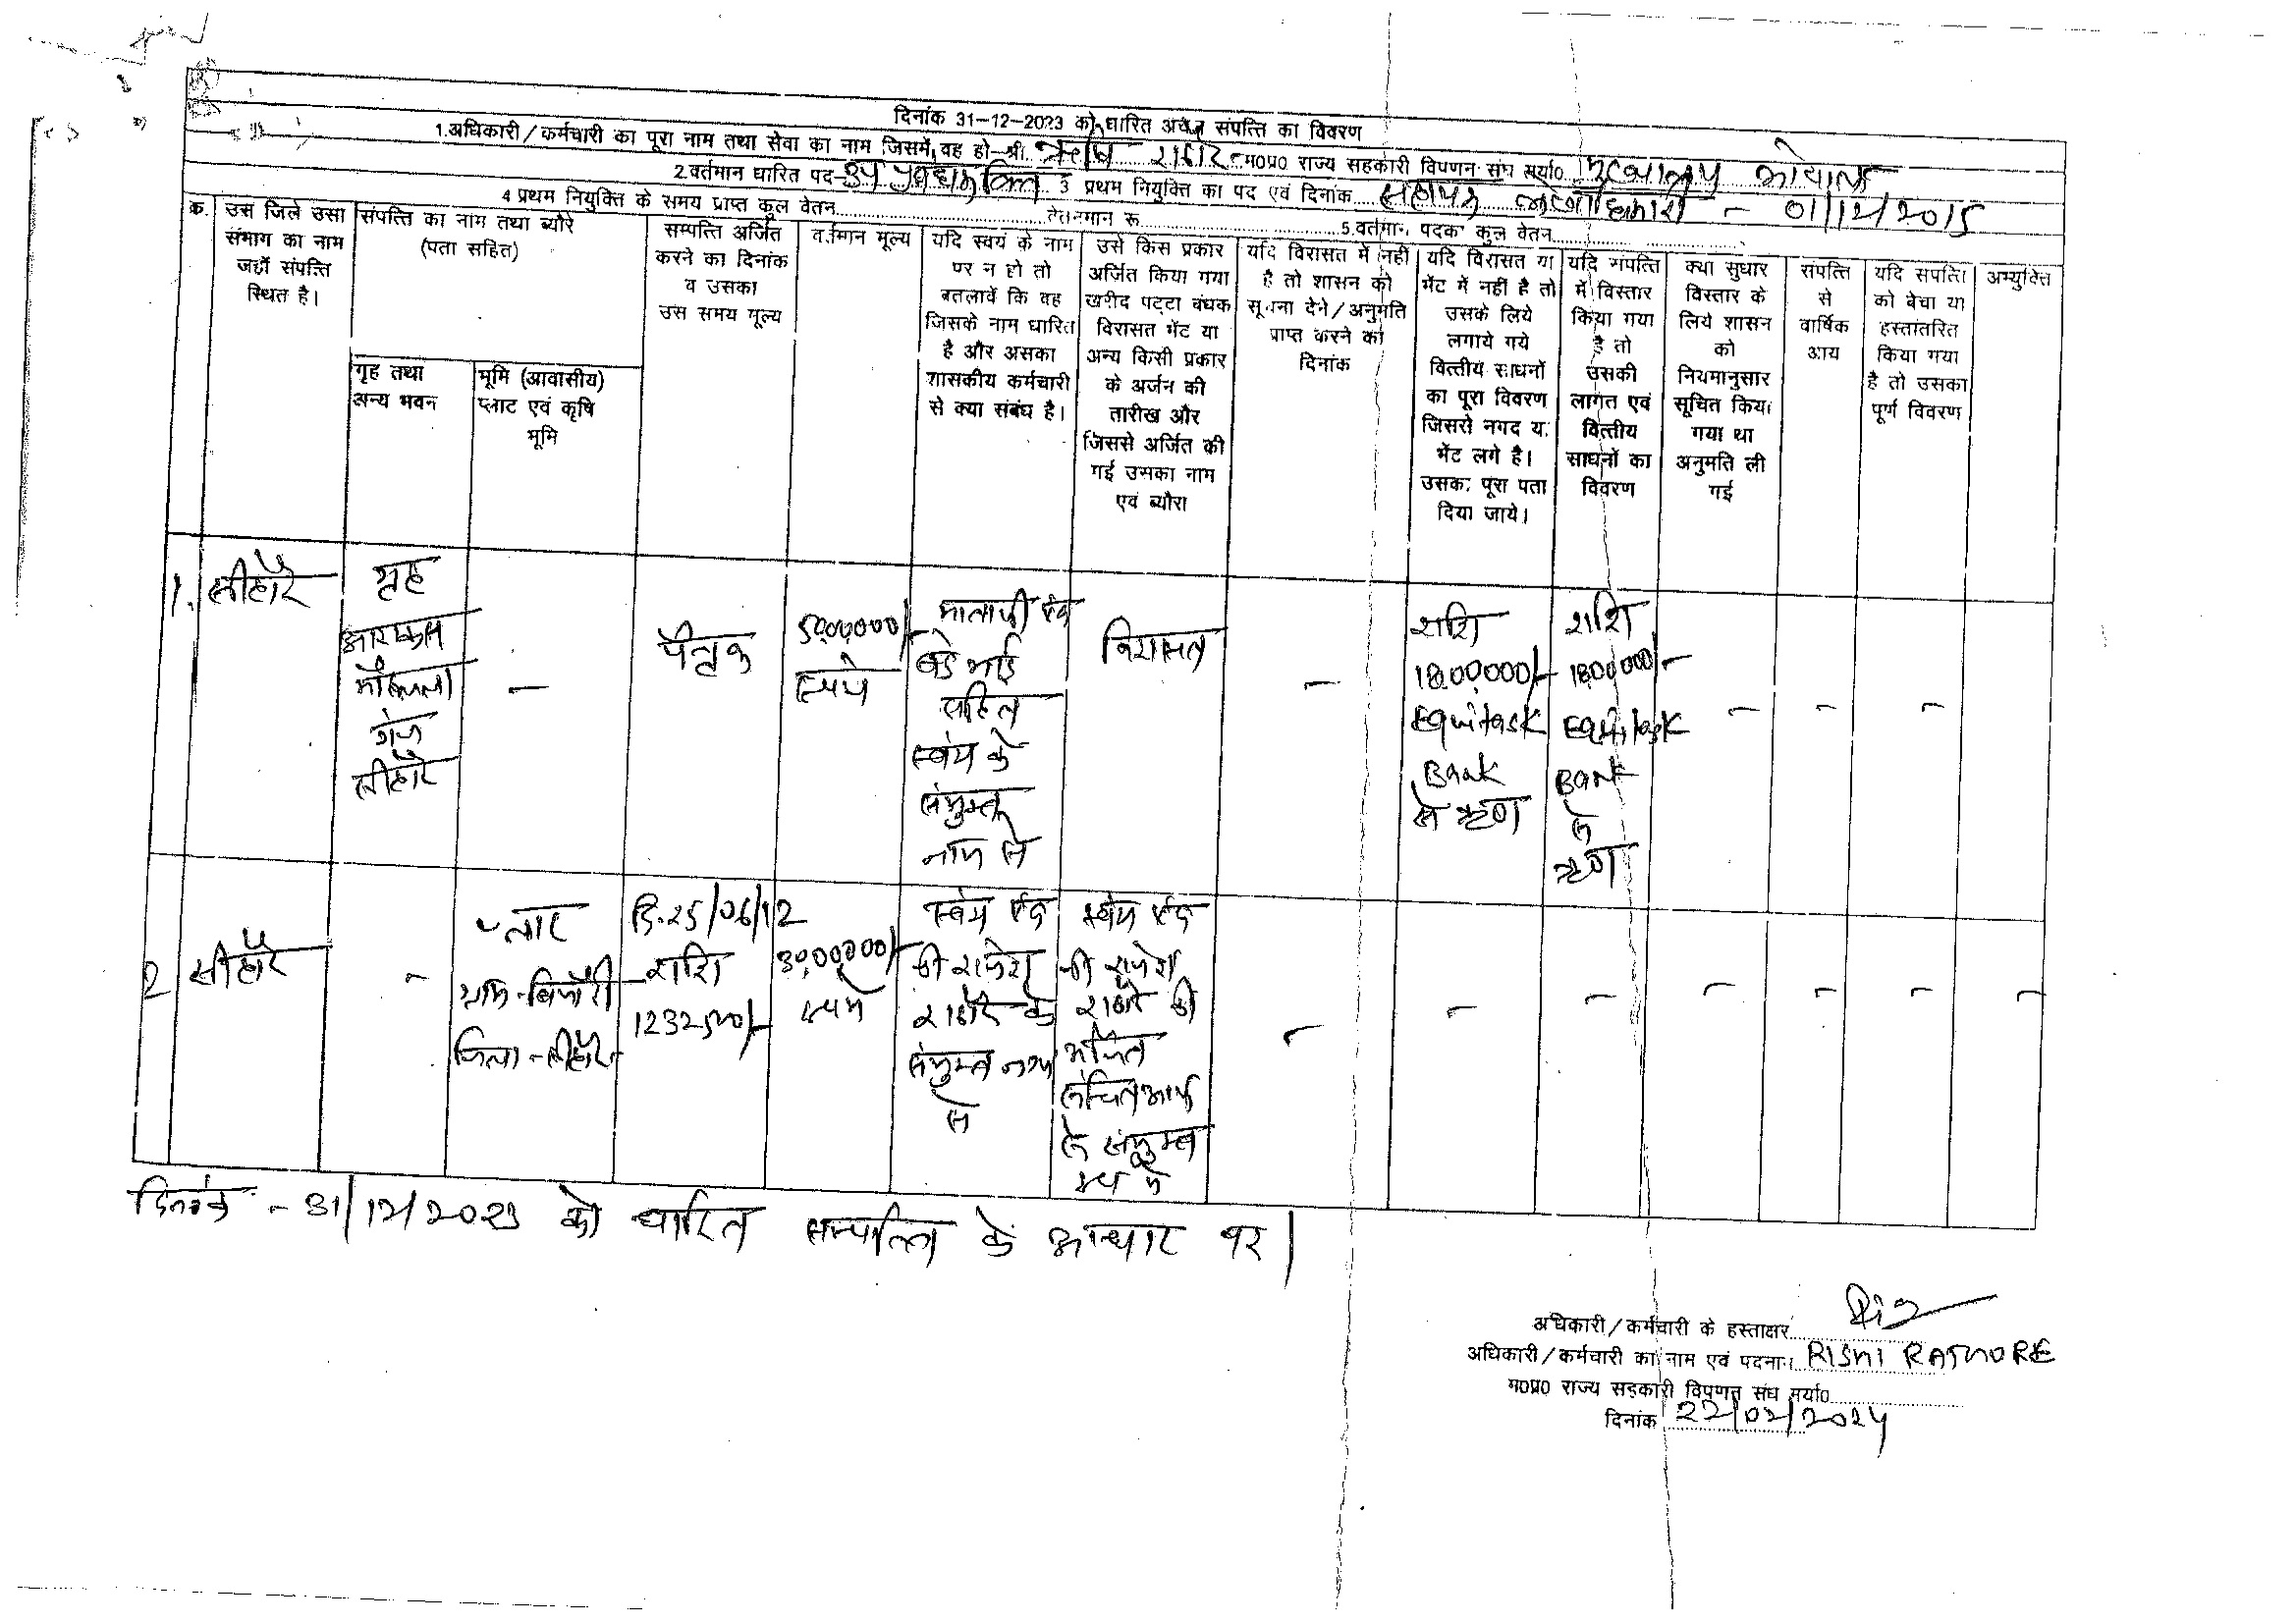 दिनांक 31-12-2023 को धारित अचल संपत्ति का विवरण
1.अधिकारी/कर्मचारी का पूरा नाम तथा सेवा का नाम जिसमें वह हो-श्री ऋषि राठौर म0प्र0 राज्य सहकारी विपणन संघ मर्या0 मुख्यालय भोपाल
2.वर्तमान धारित पद-उप प्रबंधक वित्त 3 प्रथम नियुक्ति का पद एवं दिनांक सहायक लेखाधिकारी - 01/12/2015
4 प्रथम नियुक्ति के समय प्राप्त कुल वेतन वेतनमान रू 5.वर्तमान पदका कुल वेतन
क्र.
उस जिले उसा
संभाग का नाम
जहाँ संपत्ति
स्थित है।
संपत्ति का नाम तथा ब्यौरे
(पता सहित)
गृह तथा
अन्य भवन
भूमि (आवासीय)
प्लाट एवं कृषि
भूमि
सम्पत्ति अर्जित
करने का दिनांक
व उसका
उस समय मूल्य
वर्तमान मूल्य
यदि स्वयं के नाम
पर न हो तो
बतलावें कि वह
जिसके नाम धारित
है और असका
शासकीय कर्मचारी
से क्या संबंध है।
उसे किस प्रकार
अर्जित किया गया
खरीद पट्टा बंधक
विरासत भेंट या
अन्य किसी प्रकार
के अर्जन की
तारीख और
जिससे अर्जित की
गई उसका नाम
एवं ब्यौरा
यदि विरासत में नहीं
है तो शासन को
सूचना देने/अनुमति
प्राप्त करने का
दिनांक
यदि विरासत या
भेंट में नहीं है तो
उसके लिये
लगाये गये
वित्तीय साधनों
का पूरा विवरण
जिससे नगद या
भेंट लगे है।
उसका पूरा पता
दिया जाये।
यदि संपत्ति
में विस्तार
किया गया
है तो
उसकी
लागत एवं
वित्तीय
साधनों का
विवरण
क्या सुधार
विस्तार के
लिये शासन
को
नियमानुसार
सूचित किया
गया था
अनुमति ली
गई
संपत्ति
से
वार्षिक
आय
यदि संपत्ति
को बेचा या
हस्तांतरित
किया गया
है तो उसका
पूर्ण विवरण
अभ्युक्ति
1.
सीहोर
गृह
गंज
सीहोर
-
पैतृक
50,00,000/-
रूपये
माताजी एवं
बडे भाई
सहित
स्वंय के
संयुक्त
नाम से
विरासत
-
राशि
18,00,000/-
Equitask
Bank
से ऋण
राशि
18,00,000/-
Equitask
Bank
से
ऋण
-
-
-
2
सीहोर
-
प्लाट
ग्राम-बिजौरी
जिला-सीहोर
दि.25/06/12
राशि
1232500/-
30,00,000/-
रूपये
स्वंय एवं
श्री राजेश
राठौर के
संयुक्त नाम
से
स्वंय एवं
श्री राजेश
राठौर की
अर्जित
संचित आय
से संयुक्त
रूप में
-
-
-
-
-
-
-
दिनांक - 31/12/2023 को धारित सम्पत्ति के आधार पर।
अधिकारी/कर्मचारी के हस्ताक्षर
अधिकारी/कर्मचारी का नाम एवं पदनाम RISHI RATHORE
म0प्र0 राज्य सहकारी विपणन संघ मर्या0
दिनांक 22/02/2024